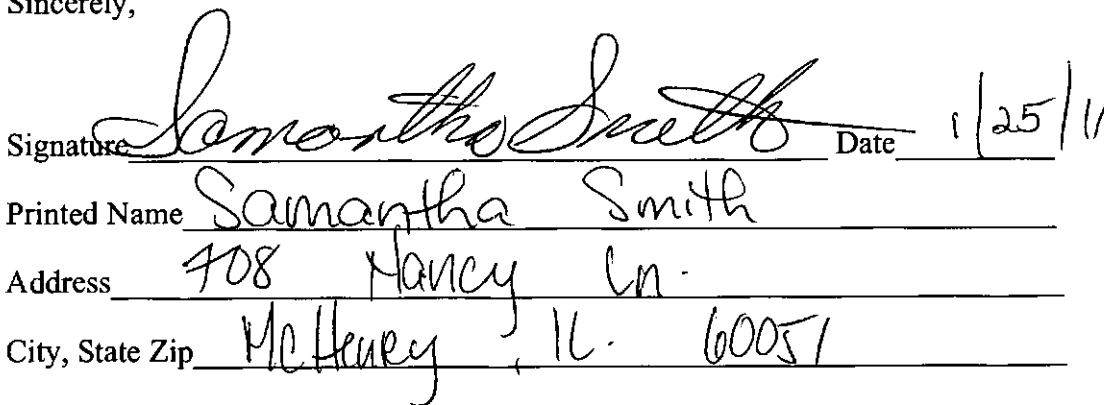 Sincerely,
Signature Samantha Smith Date 1/25/11
Printed Name Samantha Smith
Address 408 Nancy Ln.
City, State Zip McHenry, IL. 60051